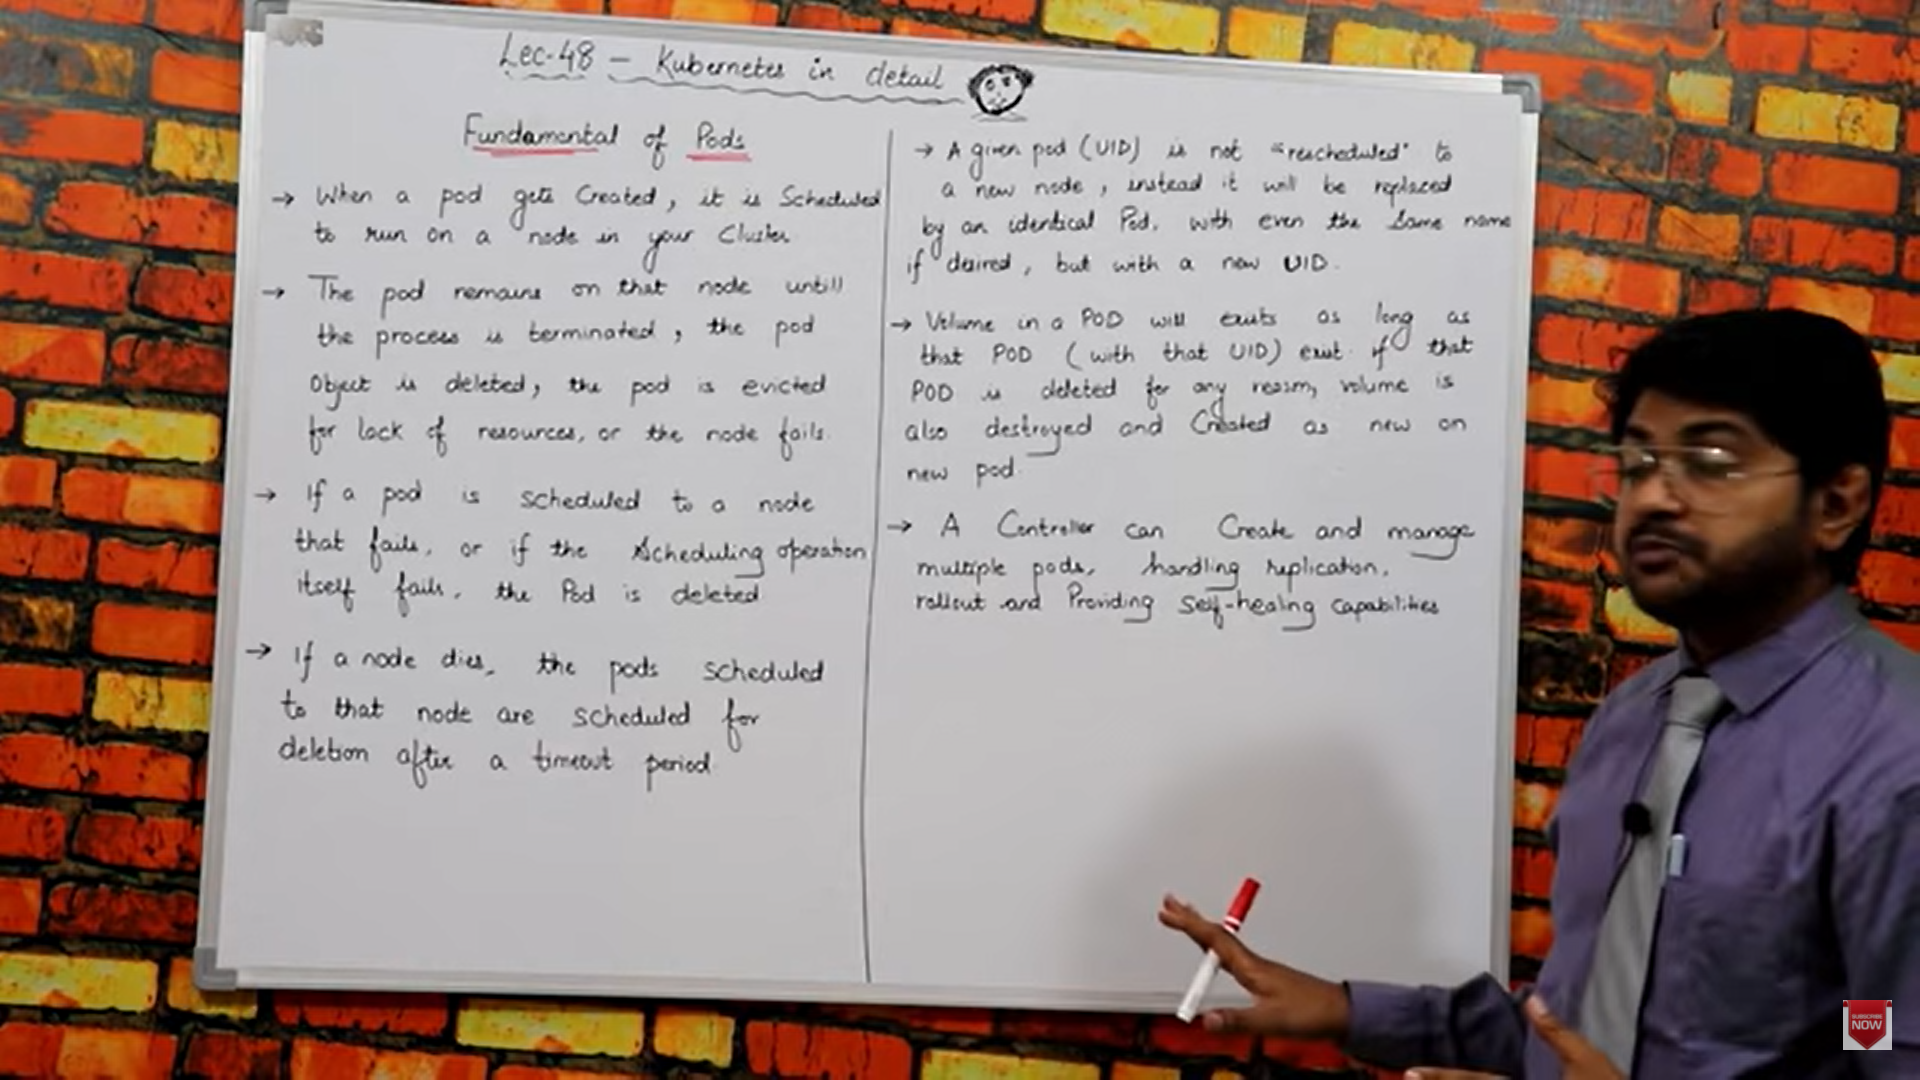 Lec-48 - Kubernetes in detail
Fundamental of Pods
→ When a pod gets Created, it is Scheduled
to run on a node in your Cluster
→ The pod remains on that node untill
the process is terminated, the pod
Object is deleted, the pod is evicted
for lack of resources, or the node fails.
→ If a pod is scheduled to a node
that fails, or if the Scheduling operation
itself fails, the Pod is deleted
→ If a node dies, the pods scheduled
to that node are scheduled for
deletion after a timeout period.
→ A given pod (UID) is not "rescheduled" to
a new node, instead it will be replaced
by an identical Pod, with even the Same name
if desired, but with a new UID.
→ Volume in a POD will exists as long as
that POD (with that UID) exist. if that
POD is deleted for any reason, volume is
also destroyed and Created as new on
new pod.
→ A Controller can Create and manage
multiple pods, handling replication,
rollout and Providing self-healing capabilities
SUBSCRIBE
NOW